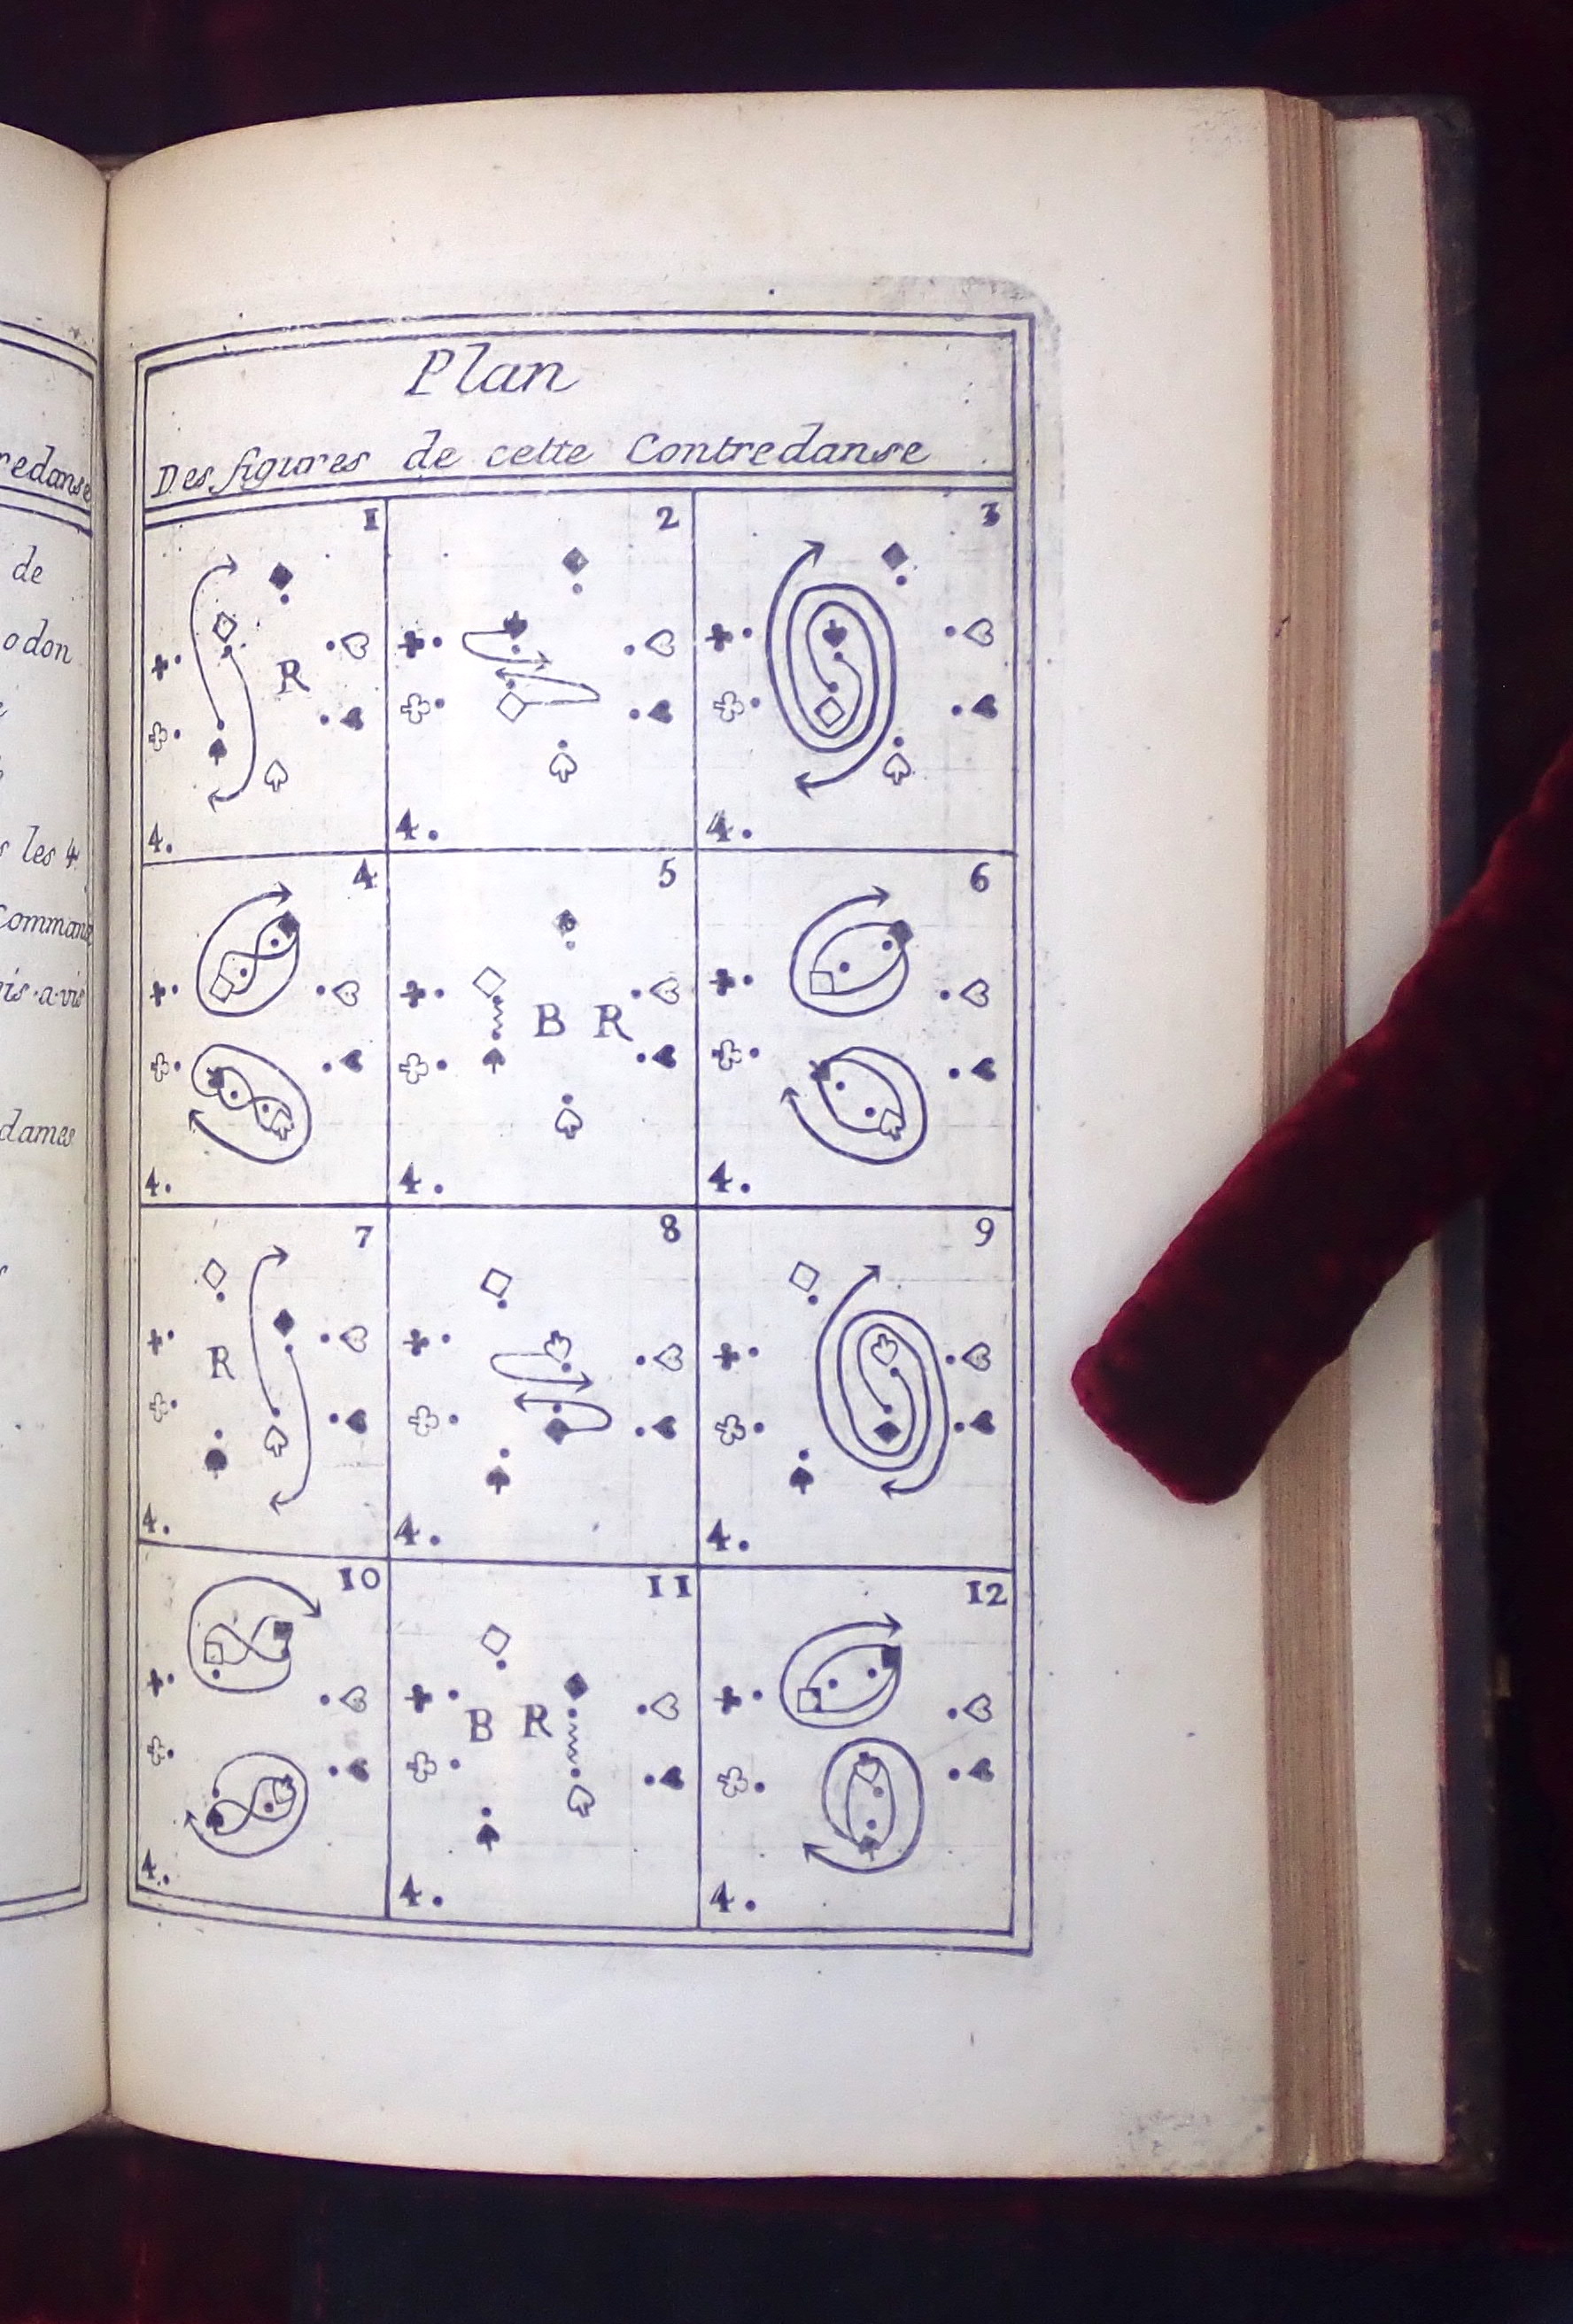 redanse
de
odon
les 4
Command
vis-a-vis
dames
Plan
Des figures de cette Contredanse
1 2 3
R
4. 4. 4.
4 5 6
B R
4. 4. 4.
7 8 9
R
4. 4. 4.
10 11 12
B R
4. 4. 4.